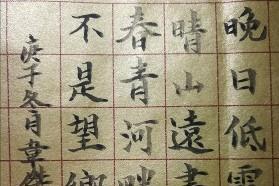 晚日低
晴山遠
春青河畔
不是望鄉
庚子冬月韋